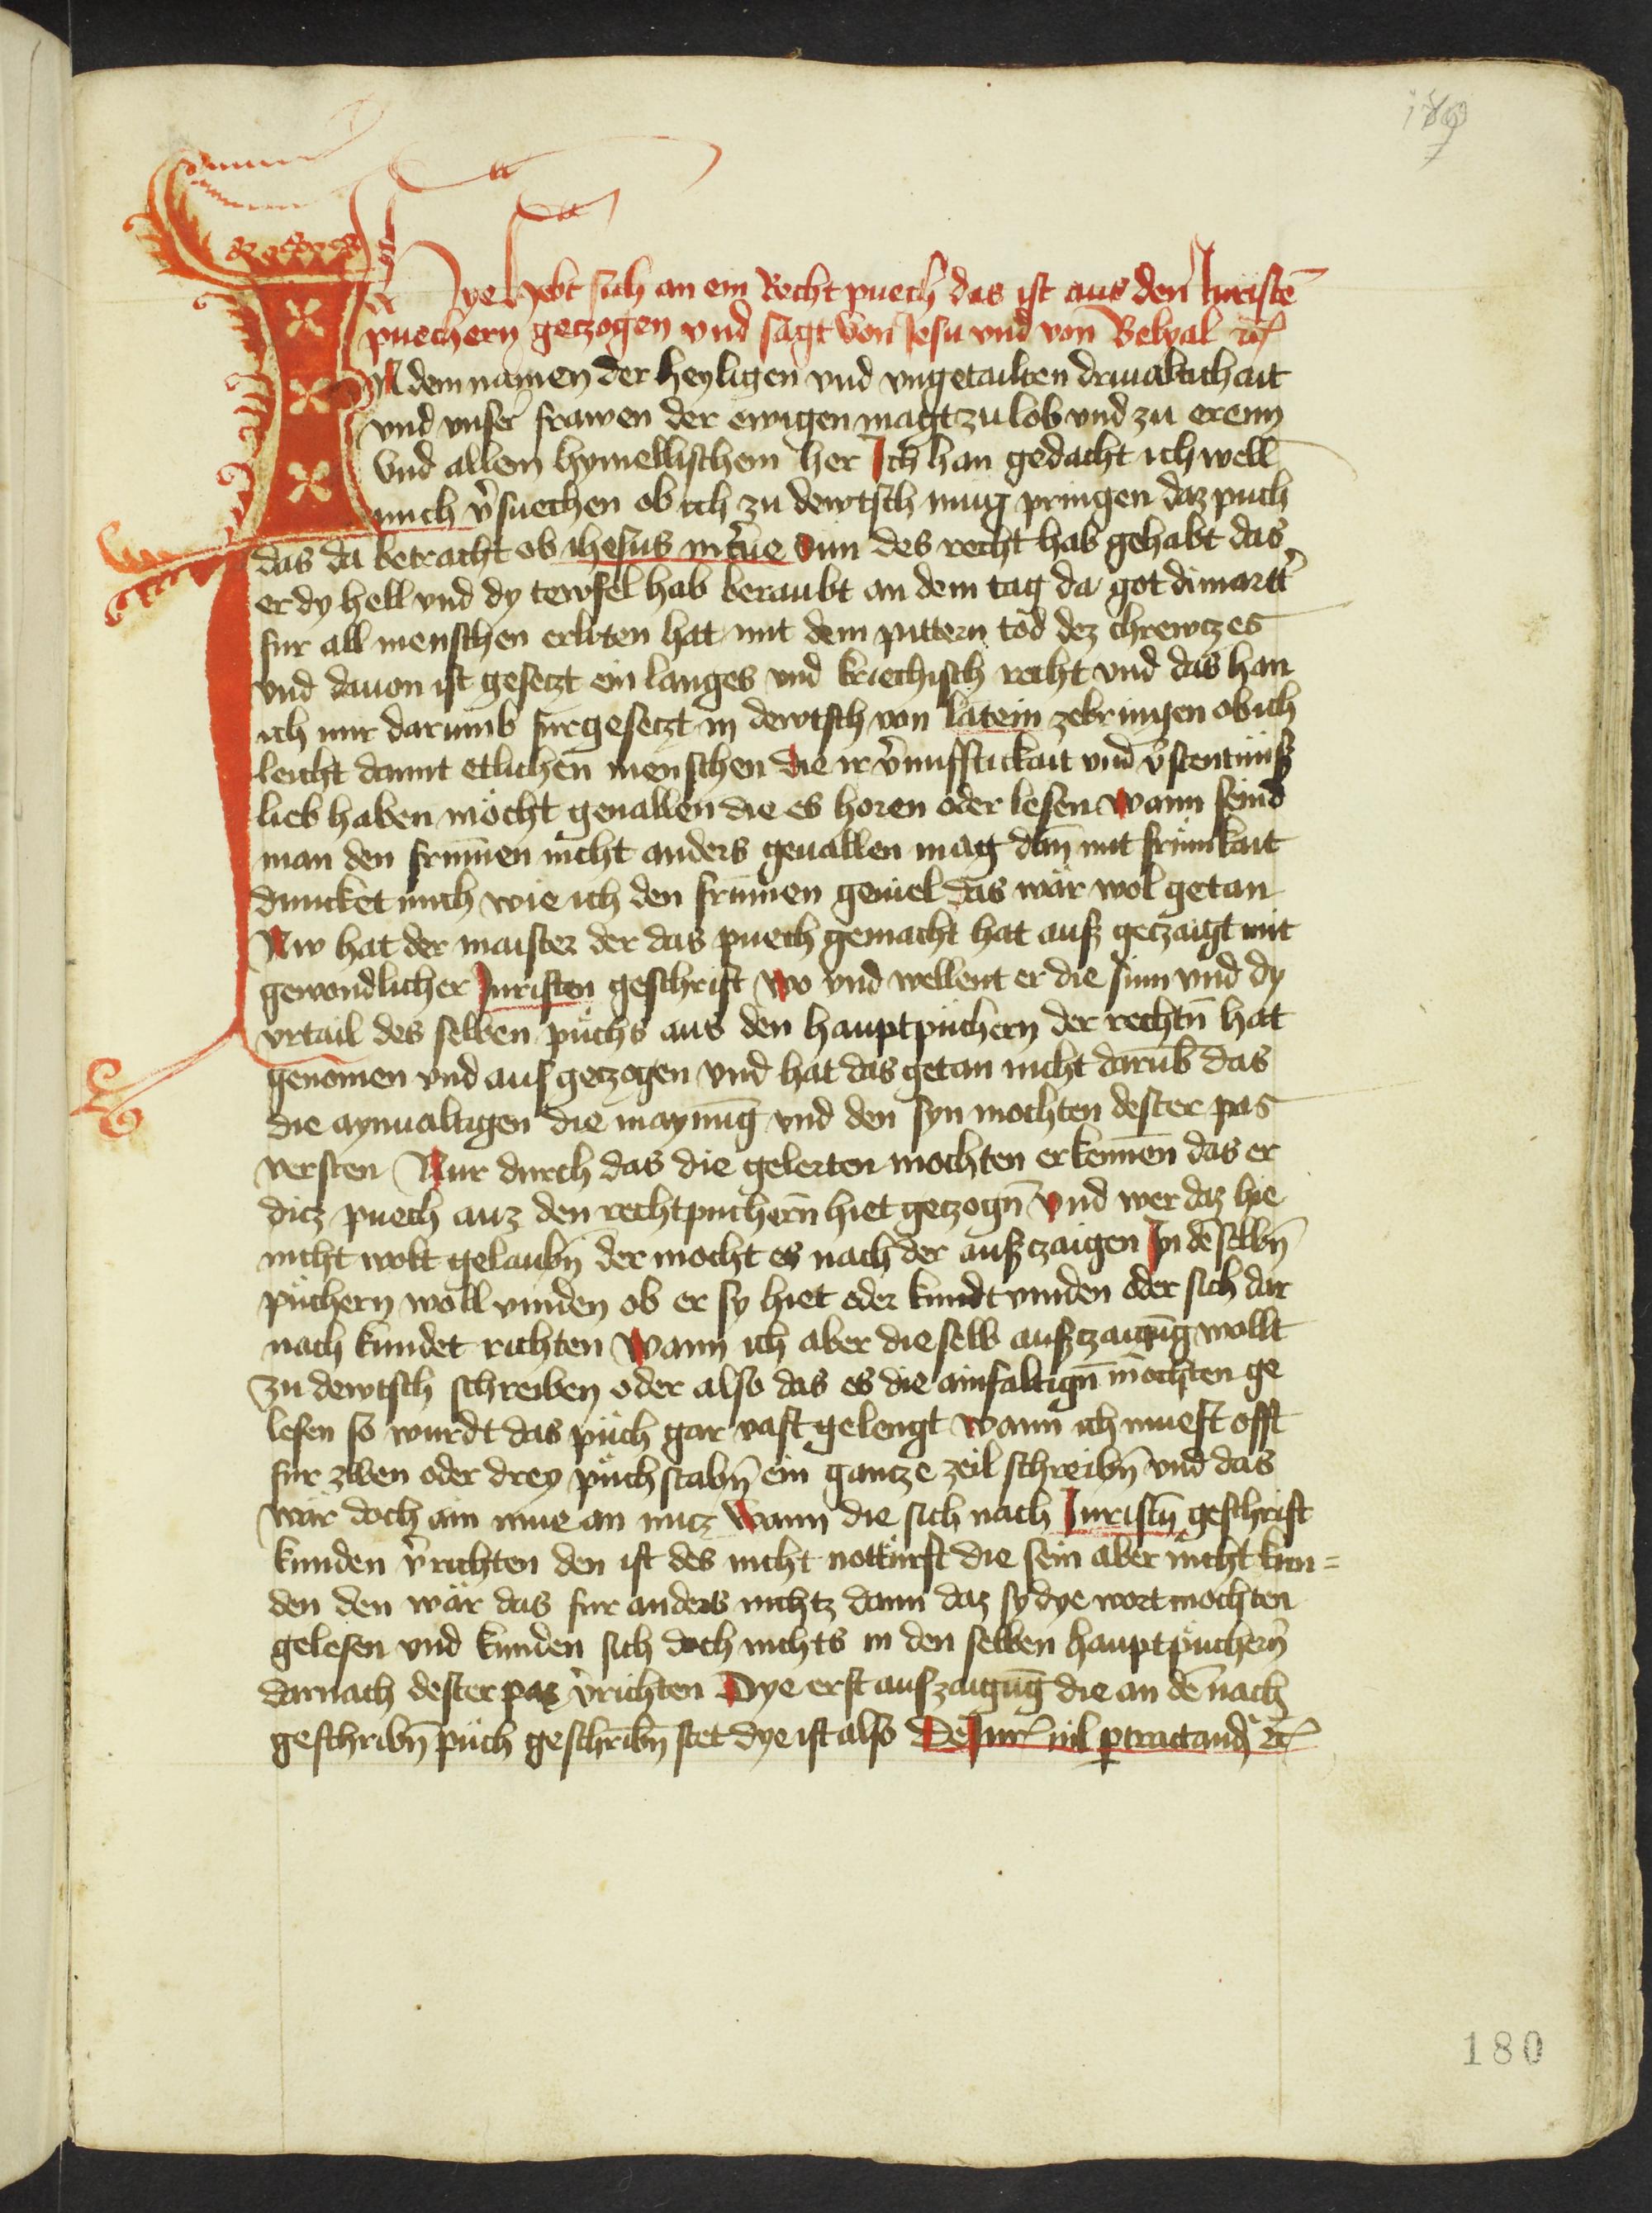 Hye hebt sich an ein Recht puech das ist aus den Juristē
puechern geczogen vnd sagt von Jesu vnd von Belyal ꝛc̄
IN dem namen der heyligen vnd vngetailten driualtichait
vnd vnser frawen der ewigen magt zu lob vnd zu erenn
Vnd allem hymellischem her Ich han gedacht ich well
mich v̉suechen ob ich zu dewtsch mug pringen daz puch
das da betracht ob ihesus marie sun des recht hab gehabt das
er dy hell vnd dy tewfel hab beraubt an dem tag da got di martt̉
fur all menschen erliten hat mit dem pittern tod dez chrewczes
vnd dauon ist geseczt ein langes vnd kriechisch recht vnd das han
ich mir darumb furgeseczt in dewtsch von latein zebringen ob ich
leicht damit etlichen menschen die ir v̉nufftickait vnd v̉stentnuß
lieb haben möcht geuallen die es horen oder lesen wann seind
man den frūmen nicht anders geuallen mag dañ mit frumkait
duncket mich wie ich den frūmen geuiel das wär wol getan
Nw hat der maister der das puech gemacht hat auß geczaigt mit
gewondlicher Juristen geschrift wo vnd wellent er die sinn vnd dy
vrtail des selben puchs aus den hauptpuchern der rechtn̄ hat
genomen vnd aus geczogen vnd hat das getan nicht darūb das
die aynualtigen die maynūg vnd den syn mochten dester pas
versten Nur durch das die gelerten mochten erkennen das er
dicz puech auz den rechtpuchern̄ hiet geczogn̄ vnd wer daz hie
nicht wolt gelaubn̄ der mocht es nach der außczaigen In dē selbn̄
püchern woll vinden ob er sy hiet oder kundt vinden oder sich dar
nach kundet richten Wann ich aber die selb außczaigūg wollt
zu dewtsch schreiben oder also das es die ainfaltign̄ möchten ge
lesen so wurdt das püch gar vast gelengt wann ich muest offt
fur zwen oder drey püchstabn̄ ein gancze zeil schreibn̄ vnd das
wär doch ain mue an nucz Wann die sich nach Juristn̄ geschrift
kunden v̉richten den ist des nicht notturft die sein aber nicht kun=
den den wär das fur anders nichtz dann daz sy dye wort mochten
gelesen vnd kunden sich doch nichts in den selben hauptpüchern̄
darnach dester paz v̉richten Dye erst auszaigūg die an dē nach
geschribn̄ püch geschribn̄ stet dye ist also De Jur nil ptractand ꝛc̄
180